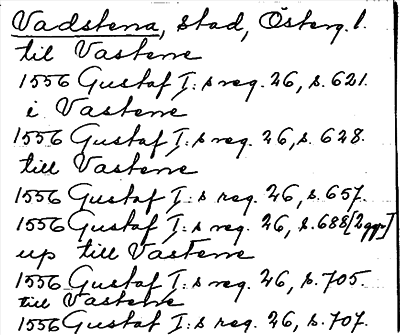 Vadstena, stad, Österg. l.
til Vastene
1556 Gustaf I:s reg. 26, s. 621.
i Vastene
1556 Gustaf I:s reg. 26, s. 628.
till Vastene
1556 Gustaf I:s reg. 26, s. 657.
1556 Gustaf I:s reg. 26, s. 688 [2 ggr]
up till Vastene
1556 Gustaf I:s reg. 26, s. 705.
till Vastene
1556 Gustaf I:s reg. 26, s. 707.